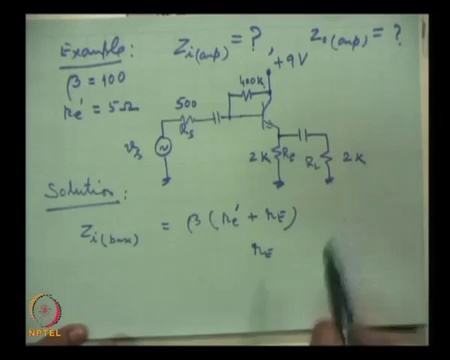 Example: Zi(amp) = ?, Zo(amp) = ?
β = 100
re' = 5Ω
+9V
400K
500
RS
vs
2K RE
RL 2K
Solution:
Zi(base) = β (re' + rE)
rE
NPTEL